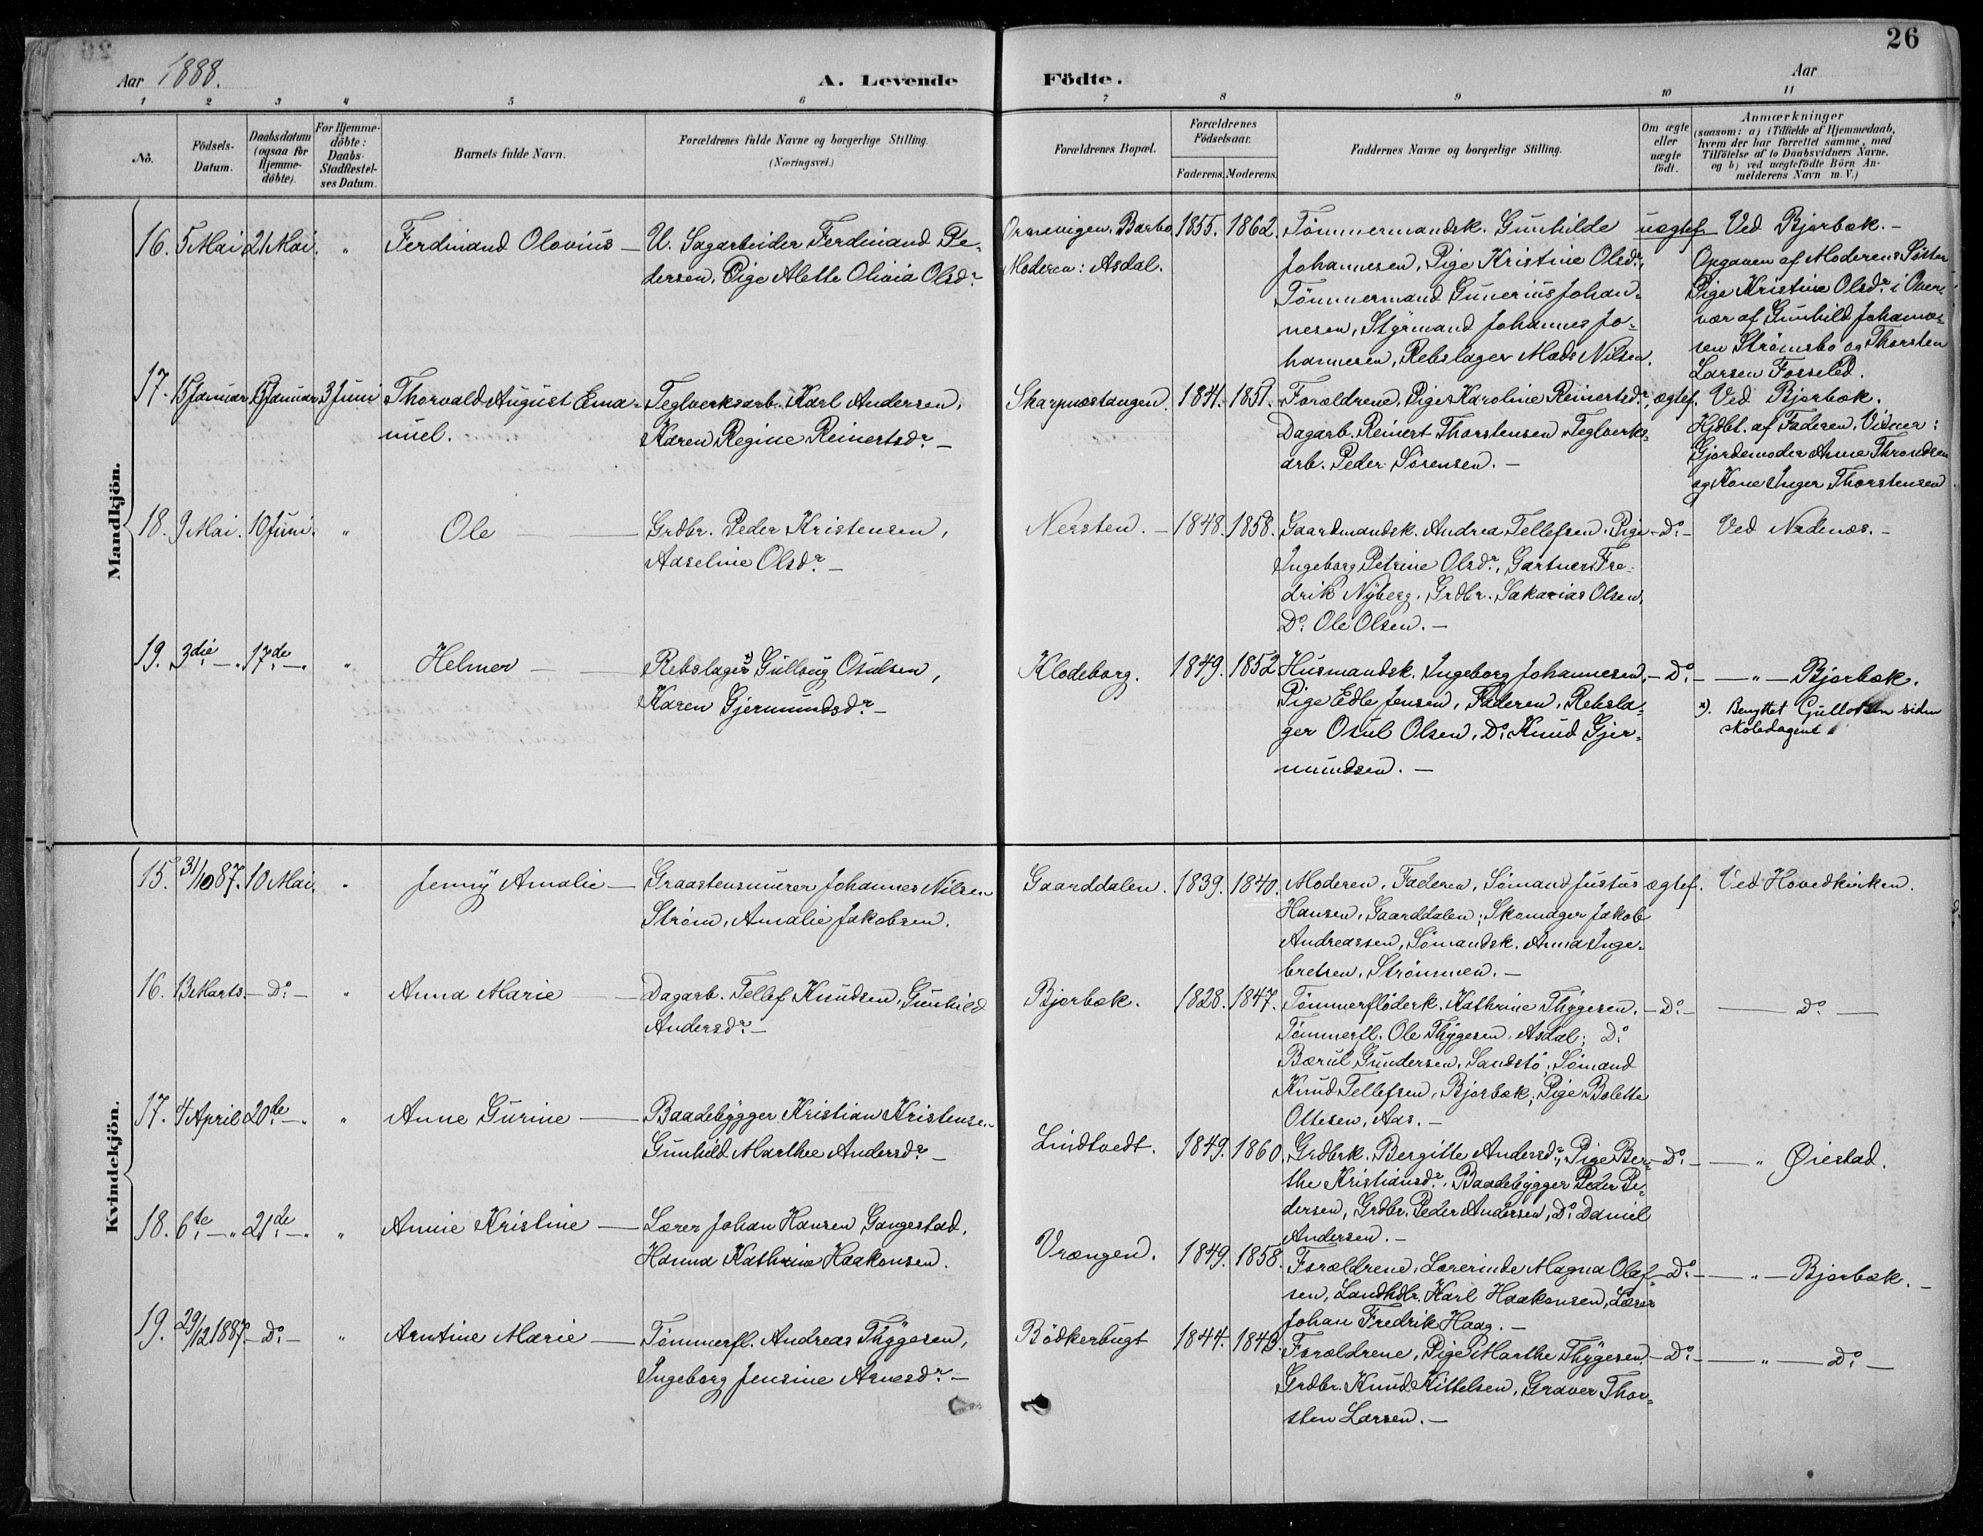 26
Aar 1888.
A. Levende
Födte.
Aar
1 2 3 4 5 6 7 8 9 10 11
No.
Födsels-
Datum.
Daabsdatum
(ogsaa for
Hjemme-
döbte).
For Hjemme-
döbte:
Daabs-
Stadfæstel-
ses Datum.
Barnets fulde Navn.
Forældrenes fulde Navne og borgerlige Stilling.
(Næringsvei.)
Forældrenes Bopæl.
Forældrenes
Födselsaar.
Faderens. Moderens.
Faddernes Navne og borgerlige Stilling.
Om ægte
eller
uægte
födt.
Anmærkninger
(saasom: a) i Tilfælde af Hjemmedaab,
hvem der har forrettet samme, med
Tilföielse af to Daabsvidners Navne.
og b) ved uægtefödte Börn An-
melderens Navn m. V.)
Mandkjön.
16. 5 Mai 21 Mai. " Ferdinand Olovius —
U. Sagarbeider Ferdinand Pe-
dersen, Pige Alette Olivia Olsdr
Barbo
Moderen: Asdal.
1855. 1862.
Tømmermandsk. Gunhilde
Johannesen, Pige Kristine Olsdr,
Tömmermand Gunerius Johan-
nesen, Styrmand Johannes Jo-
hannesen, Rebslager Mads Nilsen.
uægtef.
Ved Bjorbæk. —
Opgaven af Moderens Søster
Pige Kristine Olsdr i Over-
vær af Gunhild Johanne-
sen Strømsbo og Thorsten
Larsen Fosselod.
17. 15 Januar 15 Januar 3 Juni Thorvald August Ema-
nuel.
Teglverksarb. Karl Andersen,
Karen Regine Reinertsdr —
Skarpnæstangen. 1841. 1851.
Forældrene, Pige Karoline Reinertsdr,
Dagarb. Reinert Thorstensen Teglverks-
arb. Peder Sørensen. —
ægtef.
Ved Bjorbæk.
Hjdbt. af Faderen, Vidner:
Gjordemoder Anne Throndsen
og Kone Inger Thorstensen
18. 9 Mai. 10 Juni. " Ole —
Grdbr. Peder Kristensen,
Aaseline Olsdr —
Nersten. — 1848. 1858.
Gaardmandsk. Andrea Tellefsen, Pige
Ingeborg Petrine Olsdr, Gartner Fre-
drik Nyberg, Grdbr. Sakarias Olsen,
Do. Ole Olsen. —
— Do. —
Ved Nedenæs. —
19. 3die — " 17de — " Helmer —
Rebslager x) Gullsug Osulsen,
Karen Gjermundsdr —
Klodeborg. 1849. 1852
Husmandsk. Ingeborg Johannesen,
Pige Edle Jensen, Faderen, Rebsla-
ger Osul Olsen, Do. Knud Gjer-
mundsen. —
— Do. —
— " — Bjorbæk.
x). Benyttet Gullotsen siden
skoledagene
Kvindekjön.
15. 31/10 87. 10 Mai. " Jenny Amalie —
Graastensmurer Johannes Nilsen
Strøm, Amalie Jakobsen.
Gaarddalen. 1839. 1840.
Moderen, Faderen, Sømand Justus
Hansen, Gaarddalen; Skomager Jakob
Andreassen, Sømandsk. Anna Inge-
bretsen, Strømmen. —
ægtef.
Ved Hovedkirken.
16. 13 Marts. — Do. — " Anna Marie —
Dagarb. Tellef Knudsen, Gunhild
Andersdr —
Bjorbæk. 1828. 1847.
Tømmerfløderk. Kathrine Thygesen.
Tømmerfl. Ole Thygesen, Asdal; Do.
Bærul Gundersen, Sandstö, Sømand
Knud Tellefsen, Bjorbæk; Pige Bolette
Ottesen, Aas. —
— Do. —
— Do. —
17. 4 April 20de — " Anne Gurine —
Baadebygger Kristian Kristensen
Gunhild Marthee Andersdr —
Lindtvedt. 1849. 1860.
Grdbrk. Bergitte Andersdr, Pige Ber-
the Kristiansdr, Baadebygger Peder Pe-
dersen, Grdbr. Peder Andersen, Do. Daniel
Andersen. —
— Do. —
— " Øiestad.
18. 6te — " 21de — " Annie Kristine —
Lærer Johan Hansen Gangestad,
Hanna Kathrine Haakonsen.
Vrængen. 1849. 1858.
Forældrene, Lærerinde Magna Olaf-
sen, Landhdlr. Karl Haakonsen, Lærer
Johan Fredrik Haag. —
— Do. —
— " — Bjorbæk. —
19. 29/12 1887. — Do. — " Arntine Marie —
Tømmerfl. Andreas Thygesen,
Ingeborg Jensine Arnesdr —
Bödkerbugt 1844. 1843.
Forældrene, Pige Marthe Thygesen,
Grdbr. Knud Kittelsen, Graver Thor-
sten Larsen. —
— Do. —
— " — Do. —